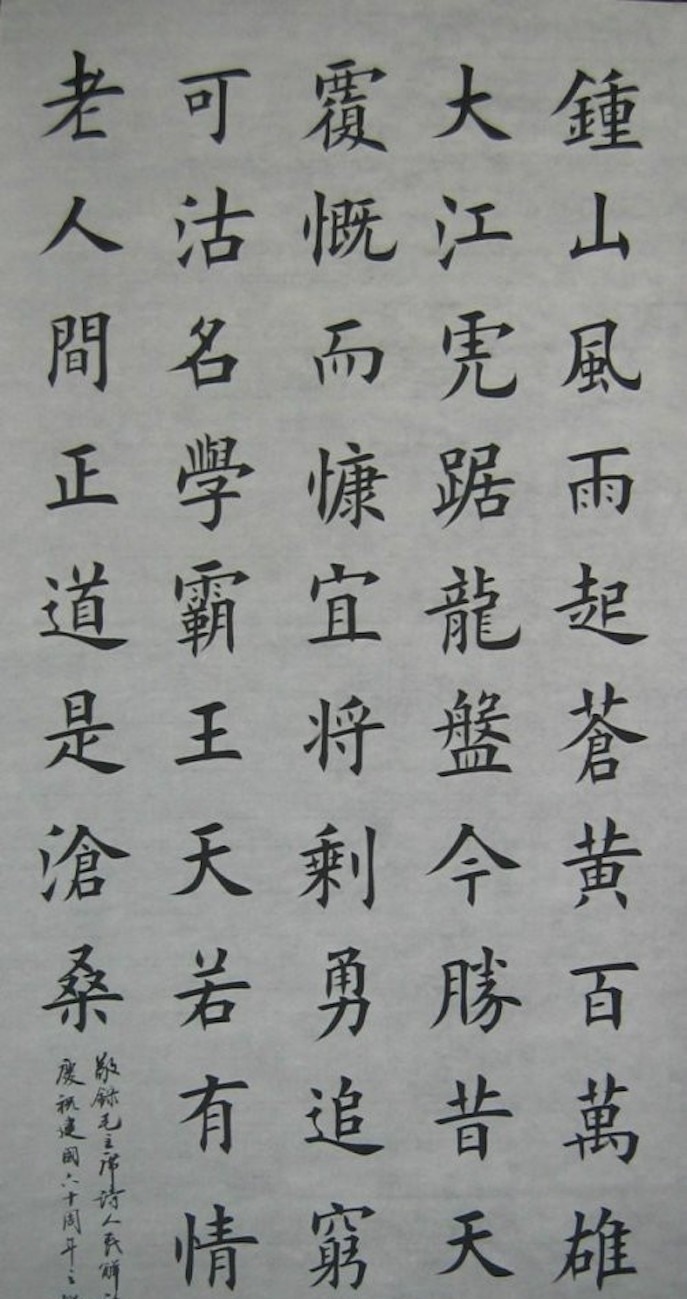 鍾山風雨起蒼黄百萬雄
大江虎踞龍盤今勝昔天
覆慨而慷宜将剩勇追窮
可沽名學霸王天若有情
老人間正道是滄桑
敬録毛主席詩人民解
慶祝建國六十周年之